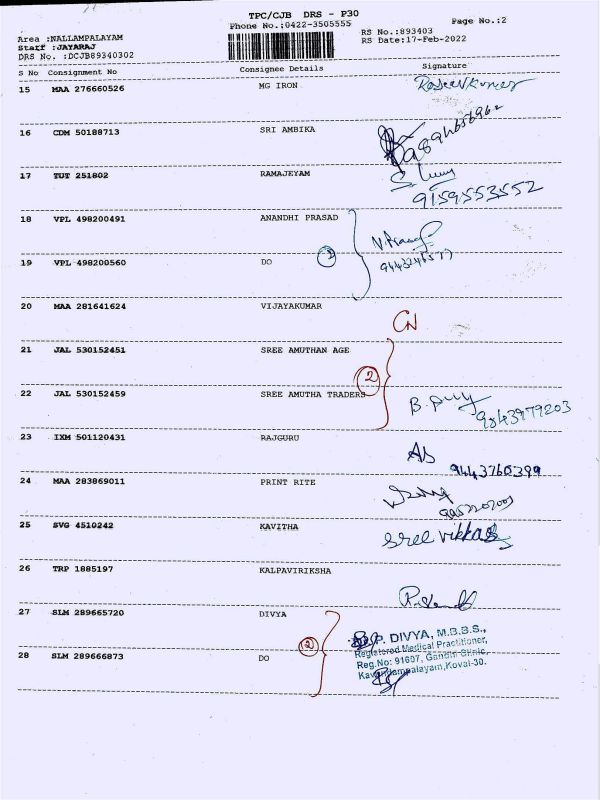 TPC/CJB DRS - P30
Phone No.:0422-3505555
Page No.:2
Area :NALLAMPALAYAM
Staff :JAYARAJ
DRS No. :DCJB89340302
RS No.:893403
RS Date:17-Feb-2022
S No Consignment No Consignee Details Signature
15 MAA 276660526 MG IRON
16 CDM 50188713 SRI AMBIKA
17 TUT 251802 RAMAJEYAM
9159553552
18 VPL 498200491 ANANDHI PRASAD
19 VPL 498200560 DO
20 MAA 281641624 VIJAYAKUMAR
CN
21 JAL 530152451 SREE AMUTHAN AGE
2
22 JAL 530152459 SREE AMUTHA TRADERS
9843979203
23 IXM 501120431 RAJGURU
9443760399
24 MAA 283869011 PRINT RITE
25 SVG 4510242 KAVITHA
sree vikkas
26 TRP 1885197 KALPAVIRIKSHA
27 SLM 289665720 DIVYA
2
P. DIVYA, M.B.B.S.,
Registered Medical Practitioner,
Reg.No: 91607, Gandhi Clinic,
Kavundampalayam,Kovai-30.
28 SLM 289666873 DO